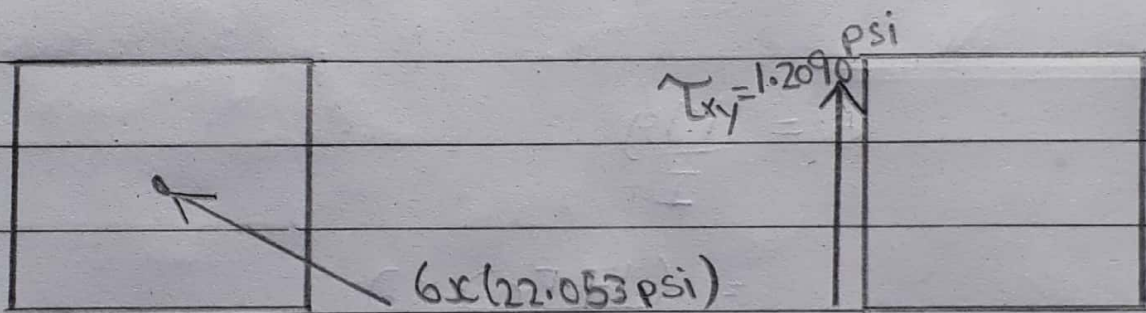 τxy=1.2090 psi
6x(22.053psi)